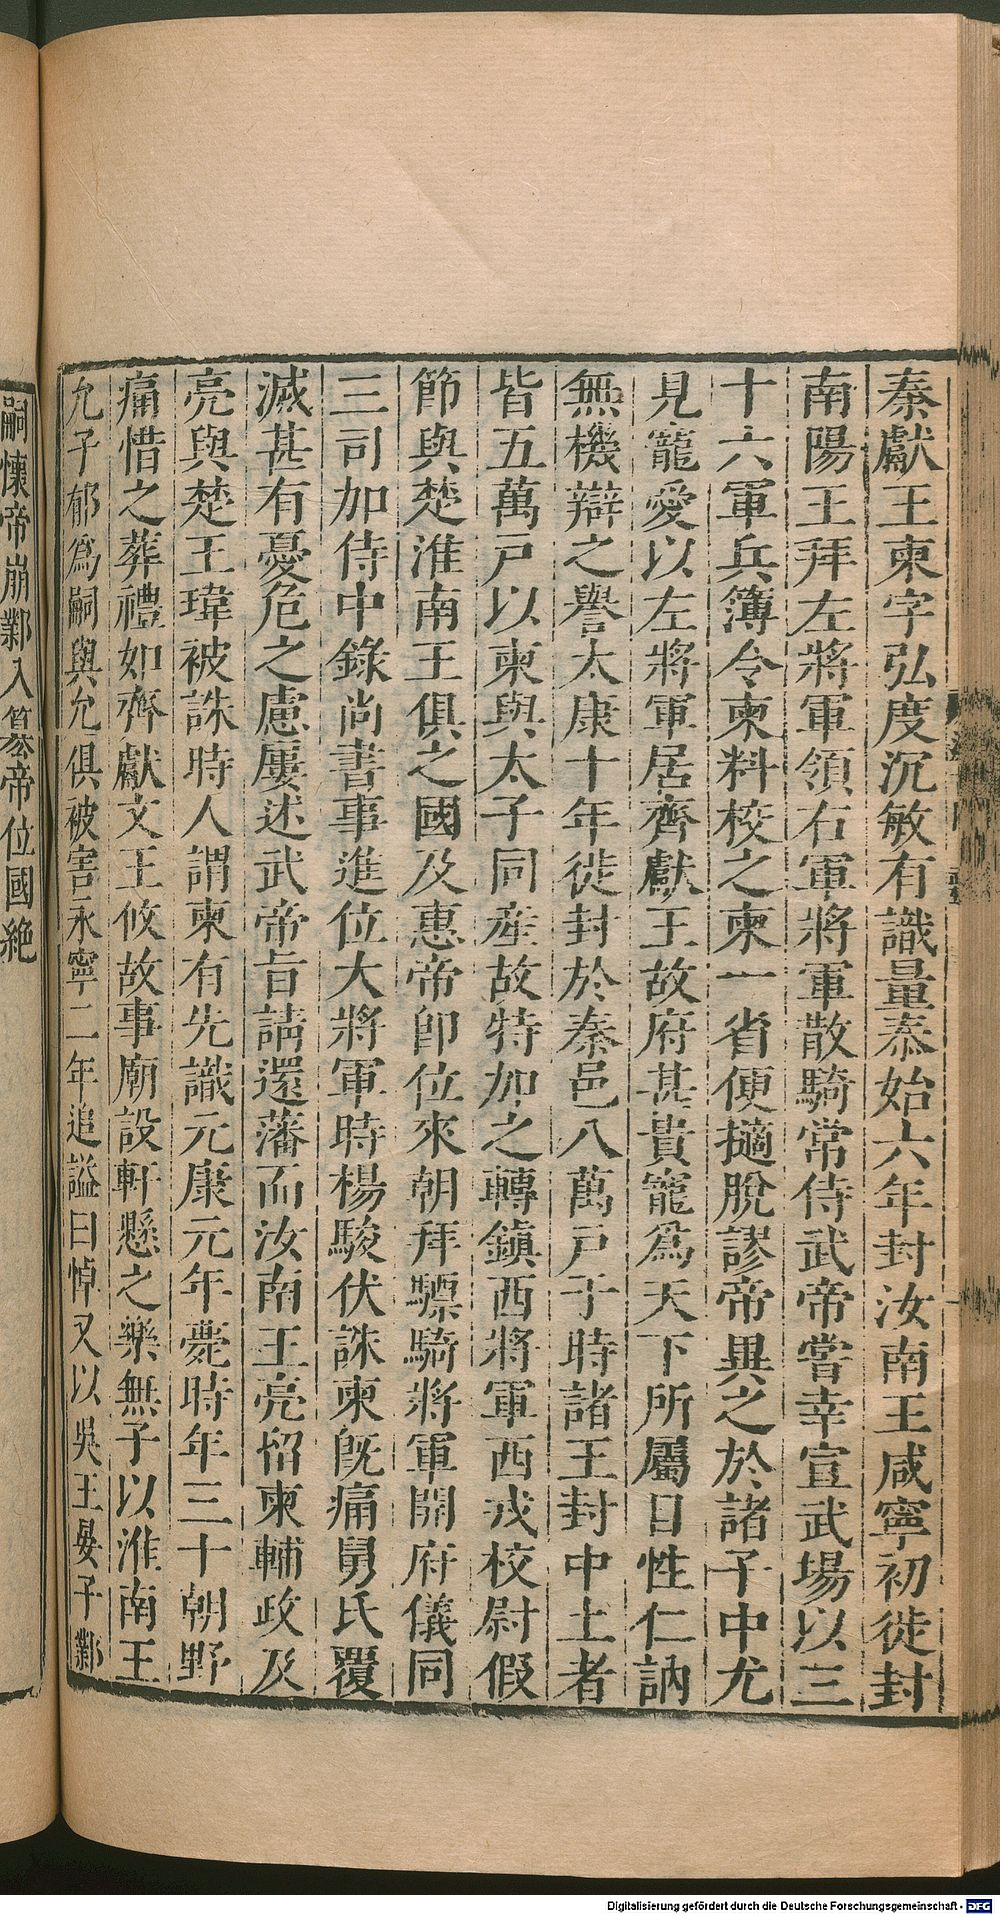 秦獻王柬字弘度沉敏有識量泰始六年封汝南王咸寧初徙封
南陽王拜左將軍領右軍將軍散騎常侍武帝嘗幸宣武場以三
十六軍兵簿令柬料校之柬一省便擿脫謬帝異之於諸子中尤
見寵愛以左將軍居齊獻王故府甚貴寵爲天下所屬目性仁訥
無機辯之譽太康十年徙封於秦邑八萬戸于時諸王封中土者
皆五萬戸以柬與太子同産故特加之轉鎭西將軍西戎校尉假
節與楚淮南王俱之國及惠帝卽位來朝拜驃騎將軍開府儀同
三司加侍中錄尚書事進位大將軍時楊駿伏誅柬旣痛舅氏覆
滅甚有憂危之慮屢述武帝旨請還藩而汝南王亮留柬輔政及
亮與楚王瑋被誅時人謂柬有先識元康元年薨時年三十朝野
痛惜之葬禮如齊獻文王攸故事廟設軒懸之樂無子以淮南王
允子郁爲嗣與允俱被害永寧二年追謚曰悼又以吳王晏子鄴
嗣懷帝崩鄴入纂帝位國絶
Digitalisierung gefördert durch die Deutsche Forschungsgemeinschaft - DFG